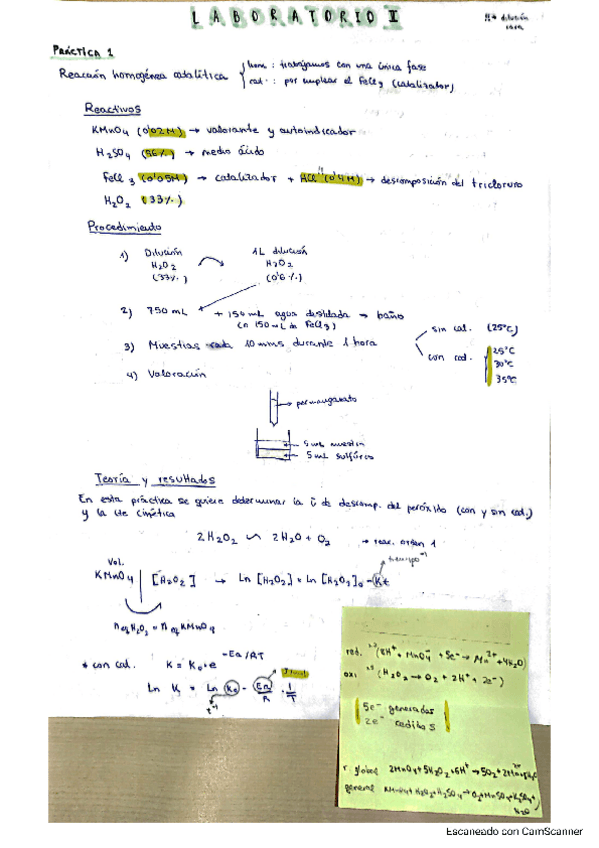 LABORATORIO I
PRÁCTICA 1
Reacción homogénea catalítica
hom: trabajamos con una única fase
cat.: por emplear el FeCl3 (catalizador)
Reactivos
KMnO4 (0'02M) → valorante y autoindicador
H2SO4 (56%) → medio ácido
FeCl3 (0'05M) → catalizador + HCl (0'4M) → descomposición del tricloruro
H2O2 (33%)
Procedimiento
1) Dilución H2O2 (33%)
1L dilución H2O2 (0'6%)
2) 750mL + 150mL agua destilada → baño
(ó 150mL de FeCl3)
sin cat. (25°C)
3) Muestras cada 10mins durante 1 hora
con cat.
25°C
30°C
35°C
4) Valoración
→ permanganato
5mL muestra
5mL sulfúrico
Teoría y resultados
En esta práctica se quiere determinar la v de descomp. del peróxido (con y sin cat.)
y la cte cinética
2H2O2 2H2O + O2 → reac. orden 1
tiempo⁻¹
Vol.
KMnO4 | [H2O2] → Ln [H2O2] = Ln [H2O2]0 - Kt
n eq H2O2 = n eq KMnO4
* con cat. K = K0·e -Ea/RT
J/mol
Ln K = Ln K0 - Ea/R · 1/T
t⁻¹
red. (8H⁺ + MnO4⁻ + 5e⁻ → Mn²⁺ + 4H2O)
oxi (H2O2 → O2 + 2H⁺ + 2e⁻)
5e⁻ generados
2e⁻
r global 2MnO4 + 5H2O2 + 6H⁺ → 5O2 + 2Mn²⁺
general KMnO4 + H2O2 + H2SO4 → O2 + MnSO4 + K2SO4 +
H2O
Escaneado con CamScanner